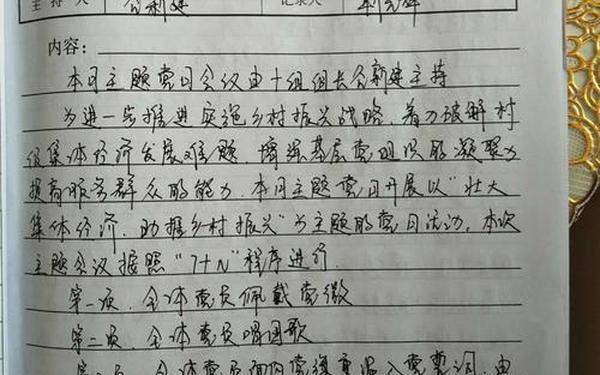 主持人 谷新建 记录人
内容：
本月主题党日会议由十组组长谷新建主持
为进一步推进实施乡村振兴战略，着力破解村
级集体经济发展难题，增强基层党组织的凝聚力
提高服务群众的能力，本月主题党日开展以“壮大
集体经济，助推乡村振兴”为主题的党日活动，本次
主题会议按照“7+N”程序进行.
第一项，全体党员佩戴党徽
第二项，全体党员唱国歌
第三项，全体党员面向党旗重温入党誓词，由